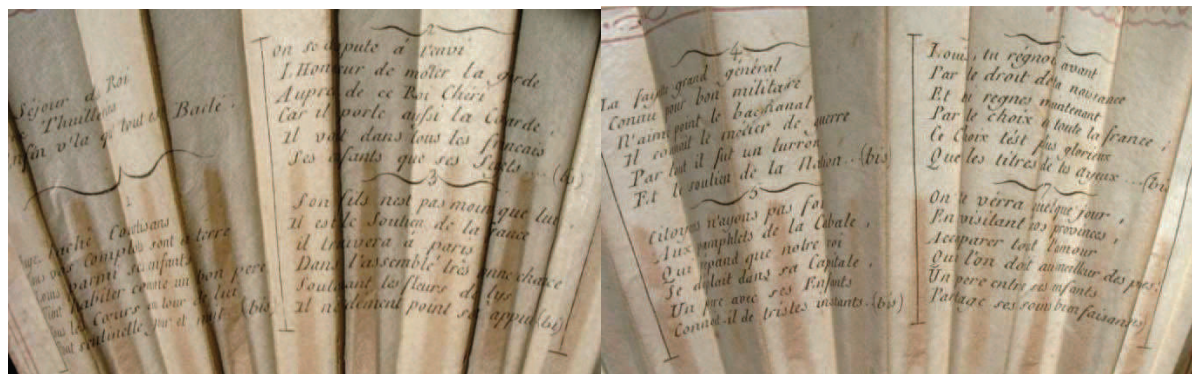 Séjour du Roi
Thuilleries
v'la que tout est Baclé.
1
Courtisans
vos complots sont a terre
parmi ses enfants
habiter comme un bon pere
les Cœurs autour de lui
sentinelle jour et nuit (bis)
2
on se dispute á l'envi
L'Honneur de monter la garde
Aupré de ce Roi Chéri
Car il porte aussi la Cocarde,
Il voit dans tous les francais
Ses enfants que ses Sujets...(bis)
3
Son fils n'est pas moin que lui
Il est le Soutien de la france
il trouvera a paris
Dans l'assemblé trés
Soutenant les fleurs de lys
Il n'e dement point son appui (bis)
4
La grand général
Connu pour bon militaire
N'aime point le bacchanal
Il connoit le métier de guerre
Par tout il fut un luron
Et le soutien de la Nation...(bis)
5
Citoyens n'ayons pas foi
Aux pamphlets de la Cabale,
Qui répand que notre roi
Se déplait dans sa Capitale,
Un pere avec ses Enfants
Connoit-il de tristes instants.(bis)
Louis, tu régnois avant
Par le droit de ta naissance
Et tu regnes maintenant
Par le choix de toute la france;
Ce Choix t'est plus glorieux
Que les titres de tes ayeux...(bis)
7
On te vérra quelque jour,
En visitant vos provinces,
Accaparer tout l'amour
Que l'on doit au meilleur des
Un pere entre ses enfants
Partage ses soins bienfaisants